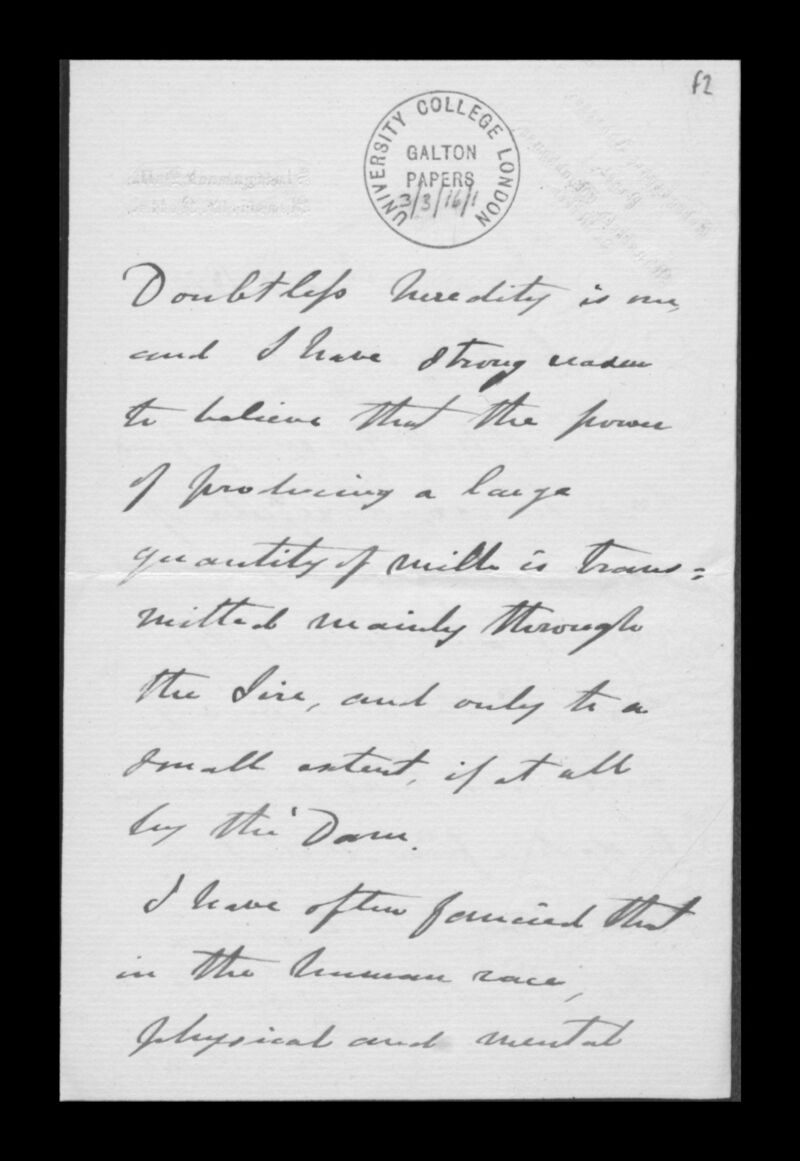 f2
UNIVERSITY COLLEGE LONDON
GALTON
PAPERS
3/3/16/1
Doubtless heredity is one,
and I have strong reason
to believe that the power
of producing a large
quantity of milk is trans=
mitted mainly through
the Sire, and only to a
small extent, if at all
by the Dam.
I have often fancied that
in the human race,
physical and mental